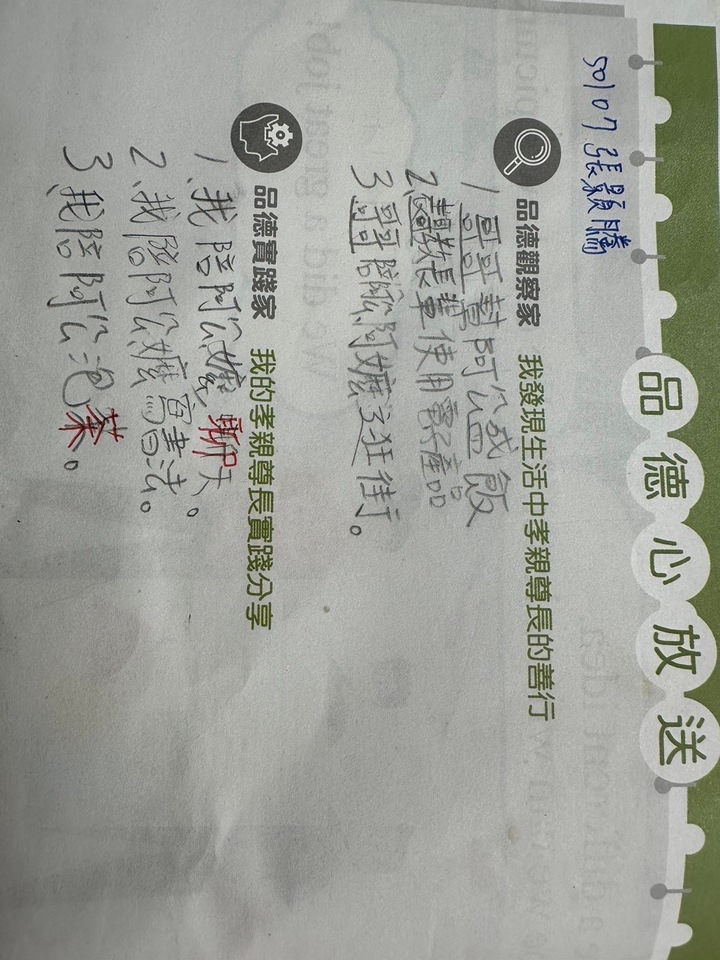 品德心放送
50107 張顥騰
品德觀察家 我發現生活中孝親尊長的善行
1.哥哥幫阿公盛飯
2.轉教長輩使用電子產品
3.哥哥陪阿嬤去逛街。
品德實踐家 我的孝親尊長實踐分享
1.我陪阿公嬤聊天。
2.我陪阿公嬤寫書法。
3.我陪阿公泡菜。